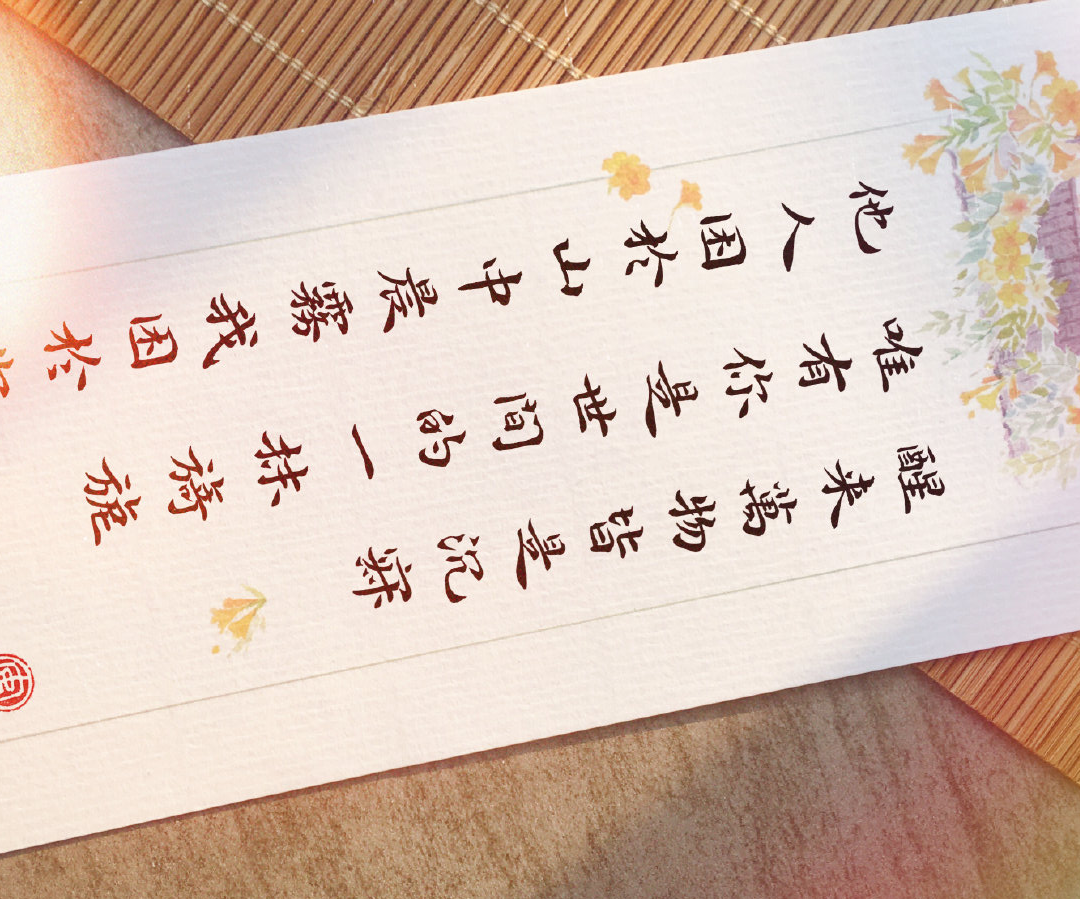 醒来萬物皆是沉寐
唯有你是世間的一抹旖旎
他人困於山中晨霧我困於